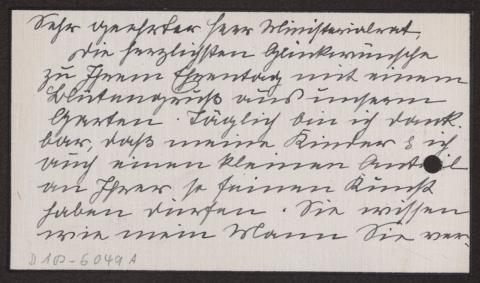 Sehr geehrter Herr Ministerialrat,
Die herzlichsten Glückwünsche
zu Ihrem Ehrentag mit einem
Blütengruß aus unserm
Garten. Täglich bin ich dank-
bar, daß meine Kinder & ich
auch einen kleinen Anteil
an Ihrer so feinen Kunst
haben dürfen. Sie wissen
wie mein Mann Sie ver-
D 102-6049 A